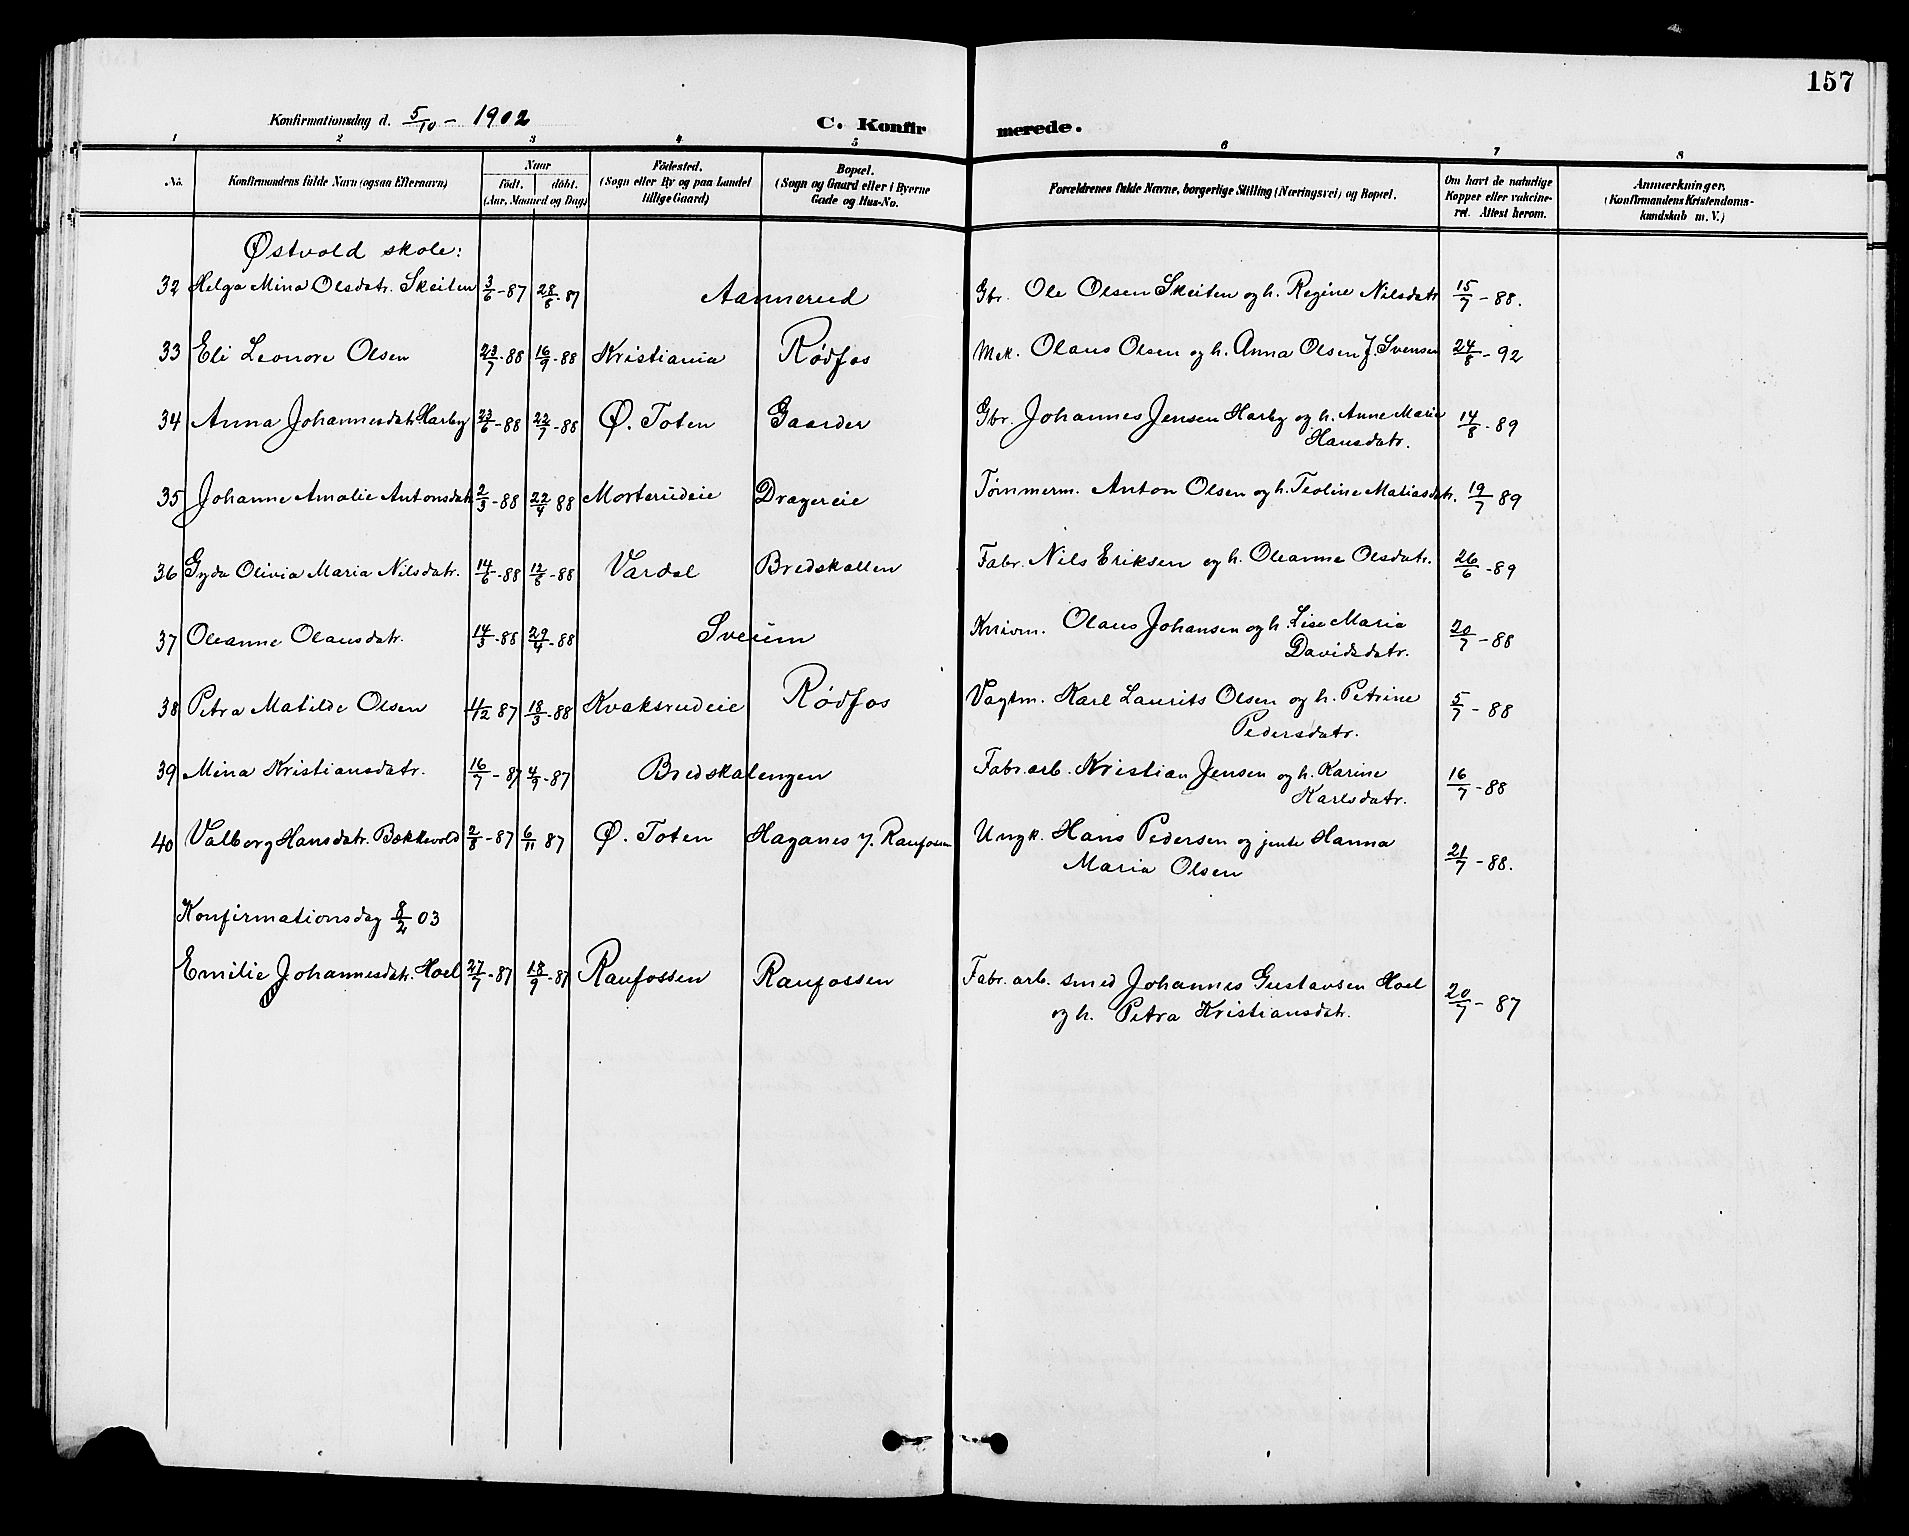 157
Konfirmationsdag d. 5/10 - 1902
C. Konfirmerede.
1 2 3 4 5 6 7 8
No. Konfirmandens fulde Navn (ogsaa Efternavn) Naar født. døbt. (Aar, Maaned og Dag) Fødested. (Sogn eller By og paa Landet tillige Gaard) Bopæl. (Sogn og Gaard eller i Byerne Gade og Hus-No. Forældrenes fulde Navne, borgerlige Stilling (Næringsvei) og Bopæl. Om havt de naturlige Kopper eller vakcineret. Attest herom. Anmærkninger. (Konfirmandens Kristendomskundskab m. V.)
Østvold skole:
32 Helga Mina Olsdatr. Skeiten 3/6-87 28/8-87 Aannerud Gbr. Ole Olsen Skeiten og h. Regine Nilsdatr 15/7-88.
33 Eli Leonore Olsen 23/7-88 16/9-88 Kristiania Rødfos Mek. Olaus Olsen og h. Anna Olsen f. Svensen 24/8-92
34 Anna Johannesdatr Harby 23/6-88 22/7-88 Ø. Toten Gaarder Gbr. Johannes Jensen Harby og h. Anne Marie
Hansdatr. 14/8-89
35 Johanne Amalie Antonsdatr 2/3-88 22/4 88 Morterudeie Dragereie Tømmerm. Anton Olsen og h. Teoline Matiasdatr. 19/7 89
36 Gyda Olivia Maria Nilsdatr. 14/6-88 12/8-88 Vardal Bredskallen Fabr. Nils Eriksen og h. Oleanne Olsdatr. 26/6-89
37 Oleanne Olausdatr. 14/3-88 29/4-88 Sveum Olaus Johansen og h. Lise Maria
Davidsdatr. 20/7-88
38 Petra Matilde Olsen 4/12 87 18/3-88 Kvaksrudeie Rødfos Vagtm. Karl Laurits Olsen og h. Petrine
Pedersdatr. 5/7-88
39 Mina Kristiansdatr. 16/7-87 4/9-87 Bredskalengen Fabr. arb. Kristian Jensen og h. Karine
Karlsdatr. 16/7-88
40 Valborg Hansdatr. Bækkevold 2/8-87 6/11 87 Ø. Toten Haganes v. Raufossen Ungk. Hans Pedersen og jente Hanna
Maria Olsen 21/7-88.
Konfirmationsdag 8/2 03
Emilie Johannesdatr. Hoel 27/7-87 18/9-87 Raufossen Raufossen Fabr. arb. smed Johannes Gustavsen Hoel
og h. Petra Kristiansdtr. 20/7-87